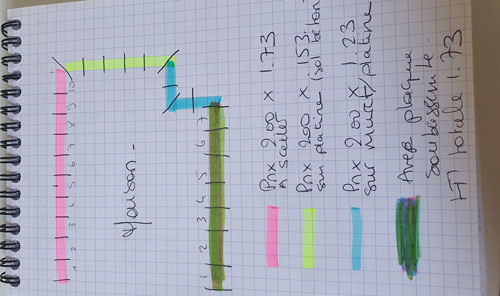 1 2 3 4 5 6 7 8 9 10
Maison.
1 2 3 4 5 6 7
Pnx 200 x 1.73
A sceller
Pnx 200 x 153.
sur platine (sol béton)
Pnx 200 x 1.23
sur muret/platine
Avec plaque
soubassement.
HT totale 1.73